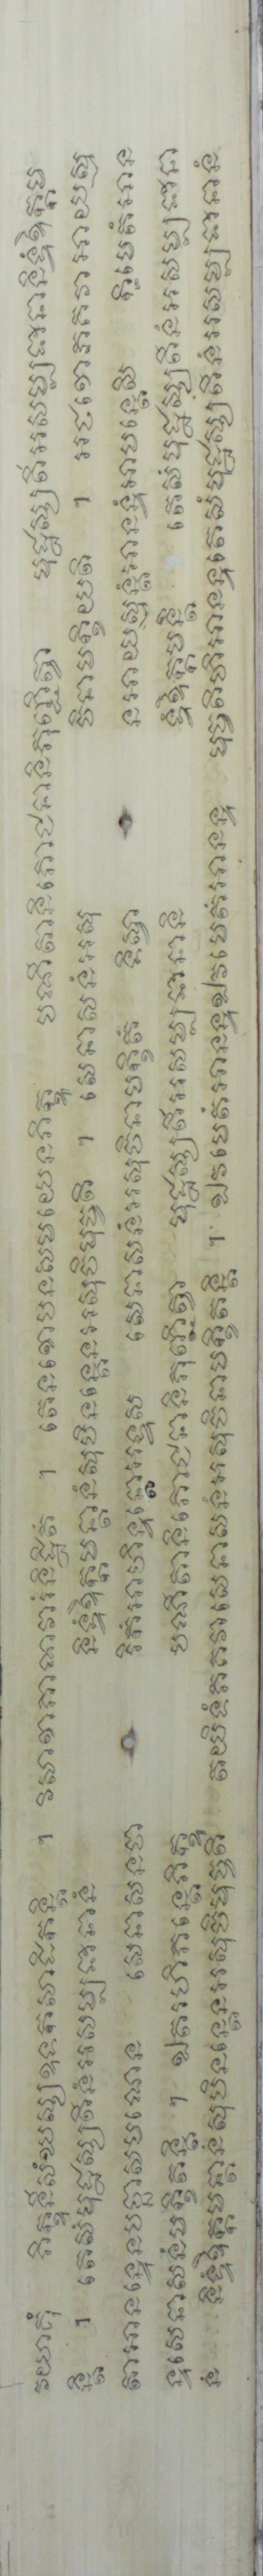 វយាគុំ ភិក្ខុនីសំឃស្សឧទកសាដិកន្តិ ។ វិសាខាភាណវារំនិដ្ឋិតំ ។ តេនខោបនសមយេនភិក្ខូ បណីតានិភោជនានិភុញ្ជិត្វា មុដ្ឋស្សតីអសម្បជានានិទ្ទំឱក្កម
ន្តិ ។ តេសំមុដ្ឋស្សតីនំអសម្បជានានំ និទ្ទំឱក្កមន្តានំសុបិនន្តេនអសុចិមុច្ចតិ ។ សេនាសនំអសុ ចិនាមក្ខិយតិ ។ អថខោភគវាអាយស្ម
តាអានន្ទេនបច្ឆាសមណេន សេនាសនចា រិកំអាហិន្ទន្តោអទ្ទស សេនាសនំអសុចិនាមក្ខិតំ ទិស្វា នអាយស្មន្តំអានន្ទំអាមន្តេសិ កិមេតំអាន
ន្ទសេនាសនំមក្ខិតន្តិ ។ ឯតរហិភន្តេភិក្ខូ បណីតានិភោជនានិភុញ្ជិត្វា មុដ្ឋស្សតីអសម្បជានានិ ទ្ទំឱក្កមន្តិ តេសំមុដ្ឋស្សតីនំអសម្បជានា
នំ និទ្ទំឱក្កមន្តានំសុបិនន្តេនអសុចិមុច្ចតិ តយិទំភគវាសេនាសនំអសុចិនាមក្ខិតន្តិ ។ ឯវមេតំអានន្ទឯវមេតំអានន្ទ មុច្ចតិហិអានន្ទតេសំមុដ្ឋស្សតីនំអសម្បជានានំ